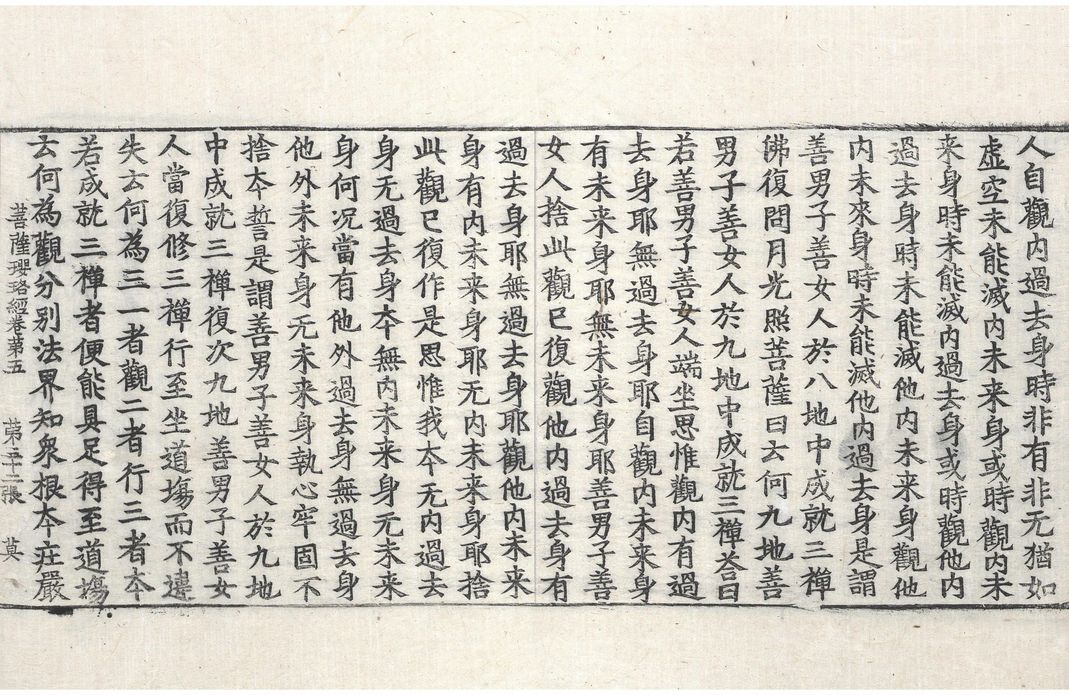 人自觀内過去身時非有非无猶如
虚空未能滅内未来身或時觀内未
来身時未能滅内過去身或時觀他内
過去身時未能滅他内未来身觀他
内未來身時未能滅他内過去身是謂
善男子善女人於八地中成就三禪
佛復問月光照菩薩曰云何九地善
男子善女人於九地中成就三禪荅曰
若善男子善女人端坐思惟觀内有過
去身耶無過去身耶自觀内未来身
有未来身耶無未来身耶善男子善
女人捨此觀已復觀他内過去身有
過去身耶無過去身耶觀他内未来
身有内未来身耶无内未来身耶捨
此觀已復作是思惟我夲无内過去
身无過去身夲無内未来身无未来
身何况當有他外過去身無過去身
他外未来身无未来身執心牢固不
捨夲誓是謂善男子善女人於九地
中成就三禪復次九地善男子善女
人當復修三禪行至坐道塲而不違
失云何為三一者觀二者行三者夲
若成就三禪者便能具足得至道塲
云何為觀分别法界知衆根夲莊嚴
菩薩瓔珞經卷第五　第三十二張　莫